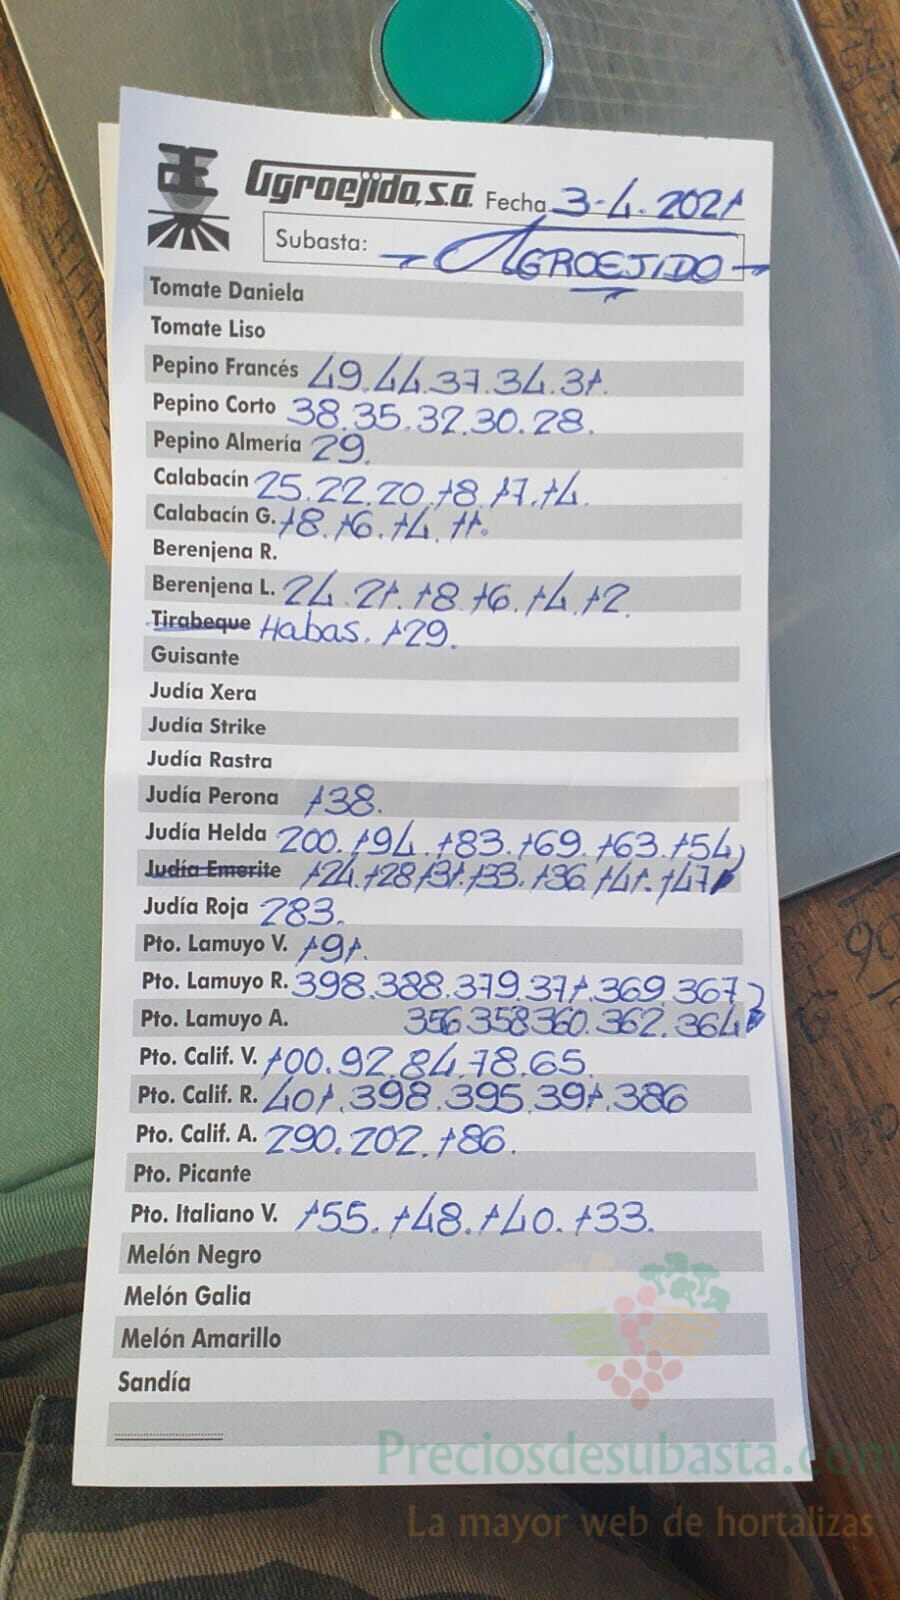 Agroejido, S.A. Fecha 3-4-2021
Subasta: AGROEJIDO
Tomate Daniela
Tomate Liso
Pepino Francés 49.44.37.34.31.
Pepino Corto 38.35.32.30.28.
Pepino Almería 29.
Calabacín 25.22.20.18.17.14.
Calabacín G. 18.16.14.11.
Berenjena R.
Berenjena L. 24.21.18.16.14.12.
Tirabeque Habas. 129.
Guisante
Judía Xera
Judía Strike
Judía Rastra
Judía Perona 138.
Judía Helda 200.194.183.169.163.154
Judía Emerite 124.128.131.133.136.141.147
Judía Roja 283.
Pto. Lamuyo V. 191.
Pto. Lamuyo R. 398.388.379.371.369.367
Pto. Lamuyo A. 356.358.360.362.364
Pto. Calif. V. 100.92.84.78.65.
Pto. Calif. R. 401.398.395.391.386
Pto. Calif. A. 290.202.186.
Pto. Picante
Pto. Italiano V. 155.148.140.133.
Melón Negro
Melón Galia
Melón Amarillo
Sandía
Preciosdesubasta.com
La mayor web de hortalizas